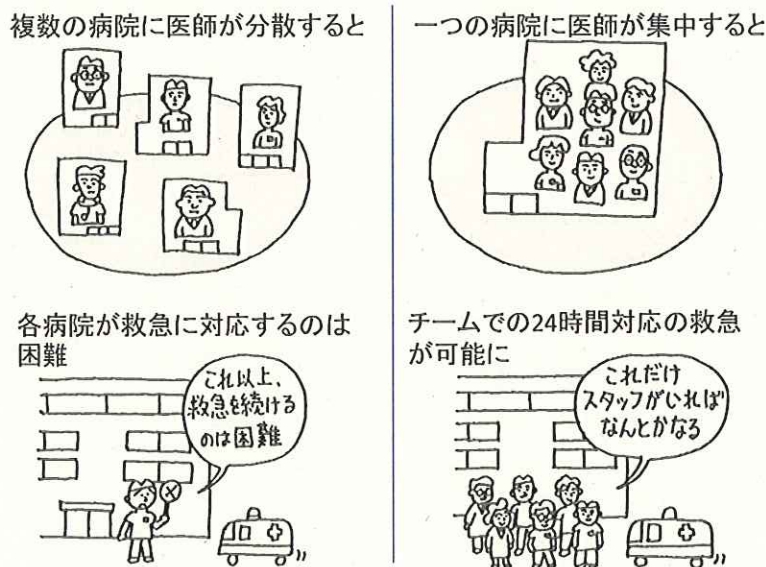 複数の病院に医師が分散すると
各病院が救急に対応するのは
困難
これ以上、
救急を続ける
のは困難
一つの病院に医師が集中すると
チームでの24時間対応の救急
が可能に
これだけ
スタッフがいれば
なんとかなる